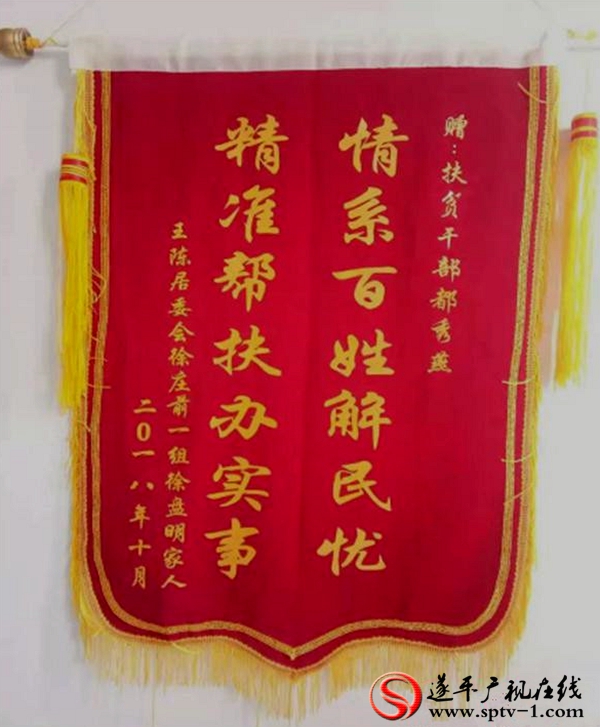 赠：扶贫干部都秀燕
情系百姓解民忧
精准帮扶办实事
王陈居委会徐庄前一组徐盘明家人
二〇一八年十月
遂平广视在线
www.sptv-1.com